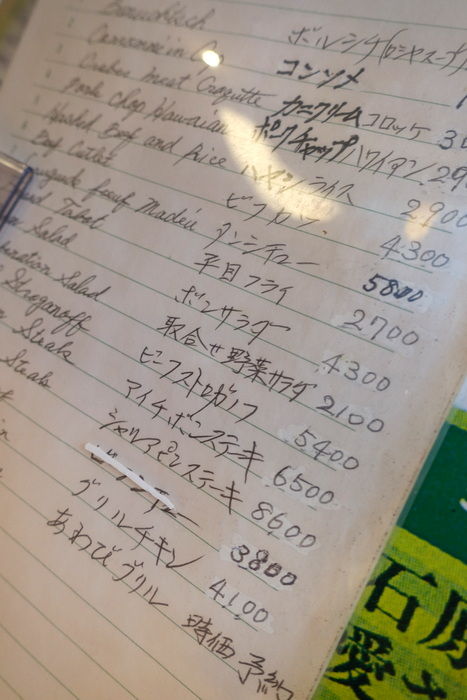 ボルシチ(ロシヤスープ)
Consomme in Cup コンソメ
Crabes Meat Croquette カニクリームコロッケ
Pork Chop Hawaiian ポークチャップハワイアン 29
Hashed Beef and Rice ハヤシライス 2900
Beef Cutlet ビフカツ 4300
タンシチュー 5800
平目フライ 2700
Salad ボンサラダー 4300
Salad 取合せ野菜サラダ 2100
Stroganoff ビーフストロガノフ 5400
Steak アイチボンステーキ 6500
Steak シャリアピンステーキ 8600
3800
グリルチキン 4,100
あわびグリル 時価 予約
石原
愛